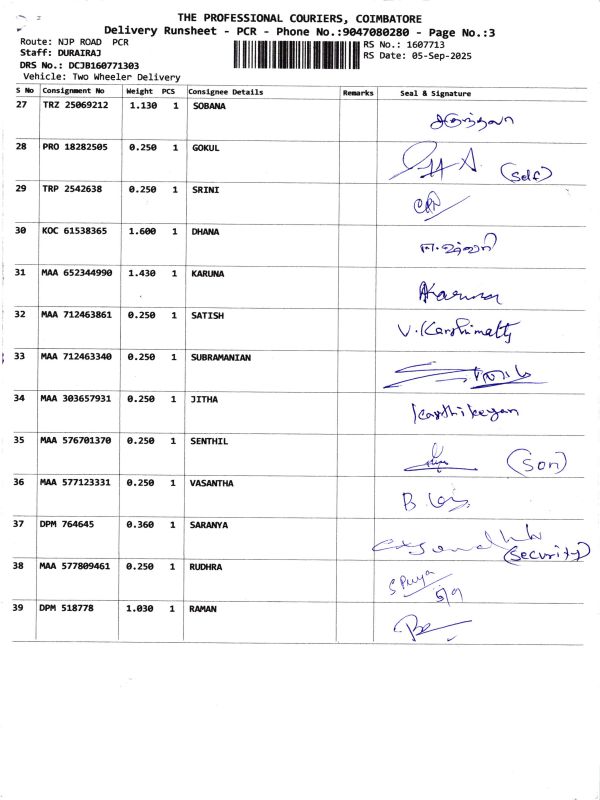 THE PROFESSIONAL COURIERS, COIMBATORE
Delivery Runsheet - PCR - Phone No.:9047080280 - Page No.:3
Route: NJP ROAD PCR
RS No.: 1607713
Staff: DURAIRAJ
RS Date: 05-Sep-2025
DRS No.: DCJB160771303
Vehicle: Two Wheeler Delivery
S No Consignment No Weight PCS Consignee Details Remarks Seal & Signature
27 TRZ 25069212 1.130 1 SOBANA
28 PRO 18282505 0.250 1 GOKUL (Self)
29 TRP 2542638 0.250 1 SRINI
30 KOC 61538365 1.600 1 DHANA
31 MAA 652344990 1.430 1 KARUNA
32 MAA 712463861 0.250 1 SATISH
33 MAA 712463340 0.250 1 SUBRAMANIAN
34 MAA 303657931 0.250 1 JITHA Karthikeyan
35 MAA 576701370 0.250 1 SENTHIL (Son)
36 MAA 577123331 0.250 1 VASANTHA
37 DPM 764645 0.360 1 SARANYA (Security)
38 MAA 577809461 0.250 1 RUDHRA S Priya
5/9
39 DPM 518778 1.030 1 RAMAN